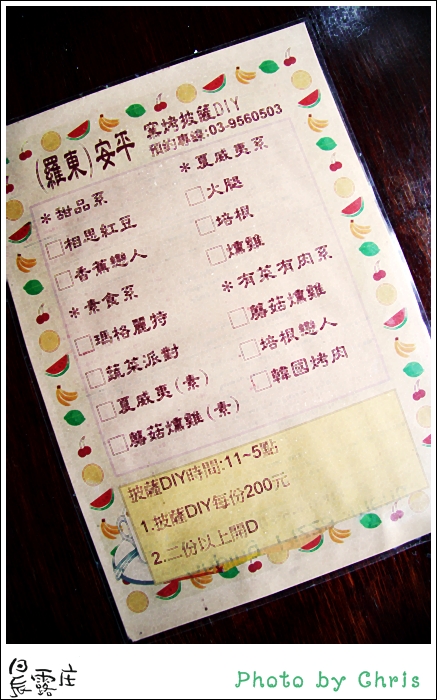 (羅東)安平 窯烤披薩DIY
預約專線:03-9560503
＊甜品系
□相思紅豆
□香蕉戀人
＊素食系
□瑪格麗特
□蔬菜派對
□夏威夷(素)
□蘑菇燻雞(素)
＊夏威夷系
□火腿
□培根
□燻雞
＊有菜有肉系
□蘑菇燻雞
□培根戀人
□韓國烤肉
披薩DIY時間:11~5點
1.披薩DIY每份200元
2.二份以上開D
晨露庄
Photo by Chris